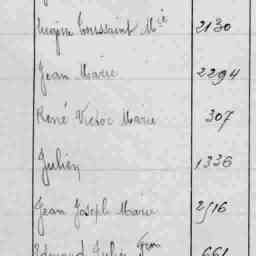 Eugène Toussaint Mie 2130
Jean Marie 2294
René Victor Marie 307
Julien 1336
Jean Joseph Marie 2516
Edouard Julien Fçois 661